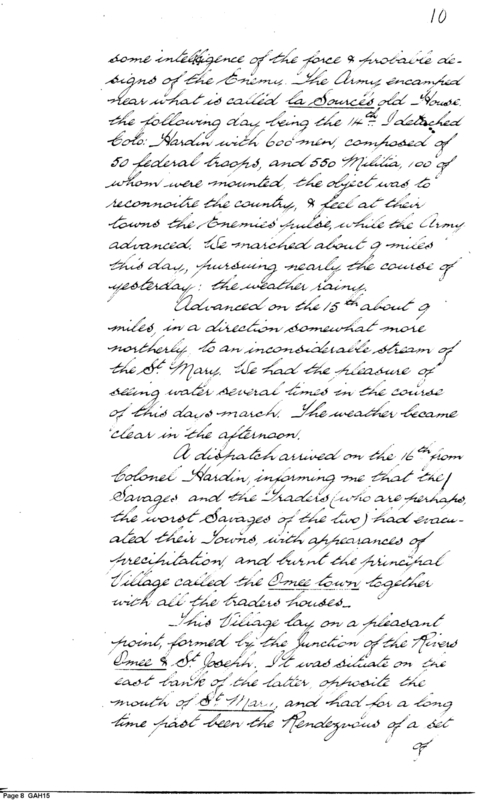 10
some intelligence of the force & probable de-
signs of the Enemy. The Army encamped
near what is called la Sources old House.
the following day being the 14th I detached
Colo: Hardin with 600 men, composed of
50 federal troops, and 550 Militia, 100 of
whom were mounted, the object was to
reconnoitre the country, & feel at their
towns the Enemies pulse, while the Army
advanced. We marched about 9 miles
this day, pursuing nearly the course of
yesterday: the weather rainy.
Advanced on the 15th about 9
miles, in a direction somewhat more
northerly, to an inconsiderable stream of
the St Mary. We had the pleasure of
seeing water several times in the course
of this days march. The weather became
clear in the afternoon.
A dispatch arrived on the 16th from
Colonel Hardin, informing me that the
Savages and the Traders (who are perhaps,
the worst Savages of the two) had evacu-
ated their Towns, with appearances of
precipitation, and burnt the principal
Village called the Omee town together
with all the traders houses_
This Village lay on a pleasant
point, formed by the Junction of the Rivers
Omee & St Joseph. It was situate on the
east bank of the latter, opposite the
mouth of St Mary, and had for a long
time past been the Rendezvous of a set
of
Page 8 GAH15